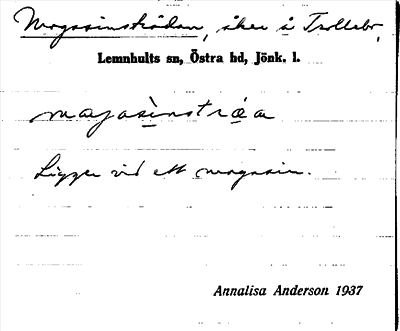 Magasinsträdan, åker å Trollebo,
Lemnhults sn, Östra hd, Jönk. l.
magasinsträa
Ligger vid ett magasin.
Annalisa Anderson 1937